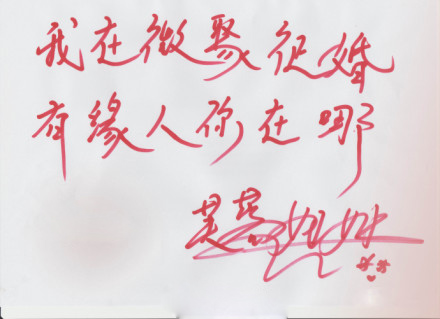 我在微聚征婚
有缘人你在哪
芙蓉姐姐